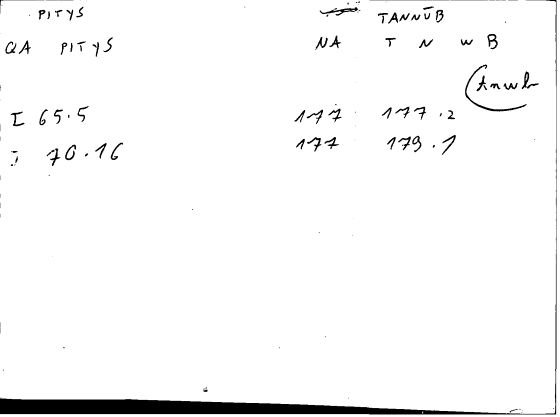 PITYS TANNŪB
QA PITYS NA T N W B
tnwb
I 65.5 177 177.2
I 70.16 177 179.1